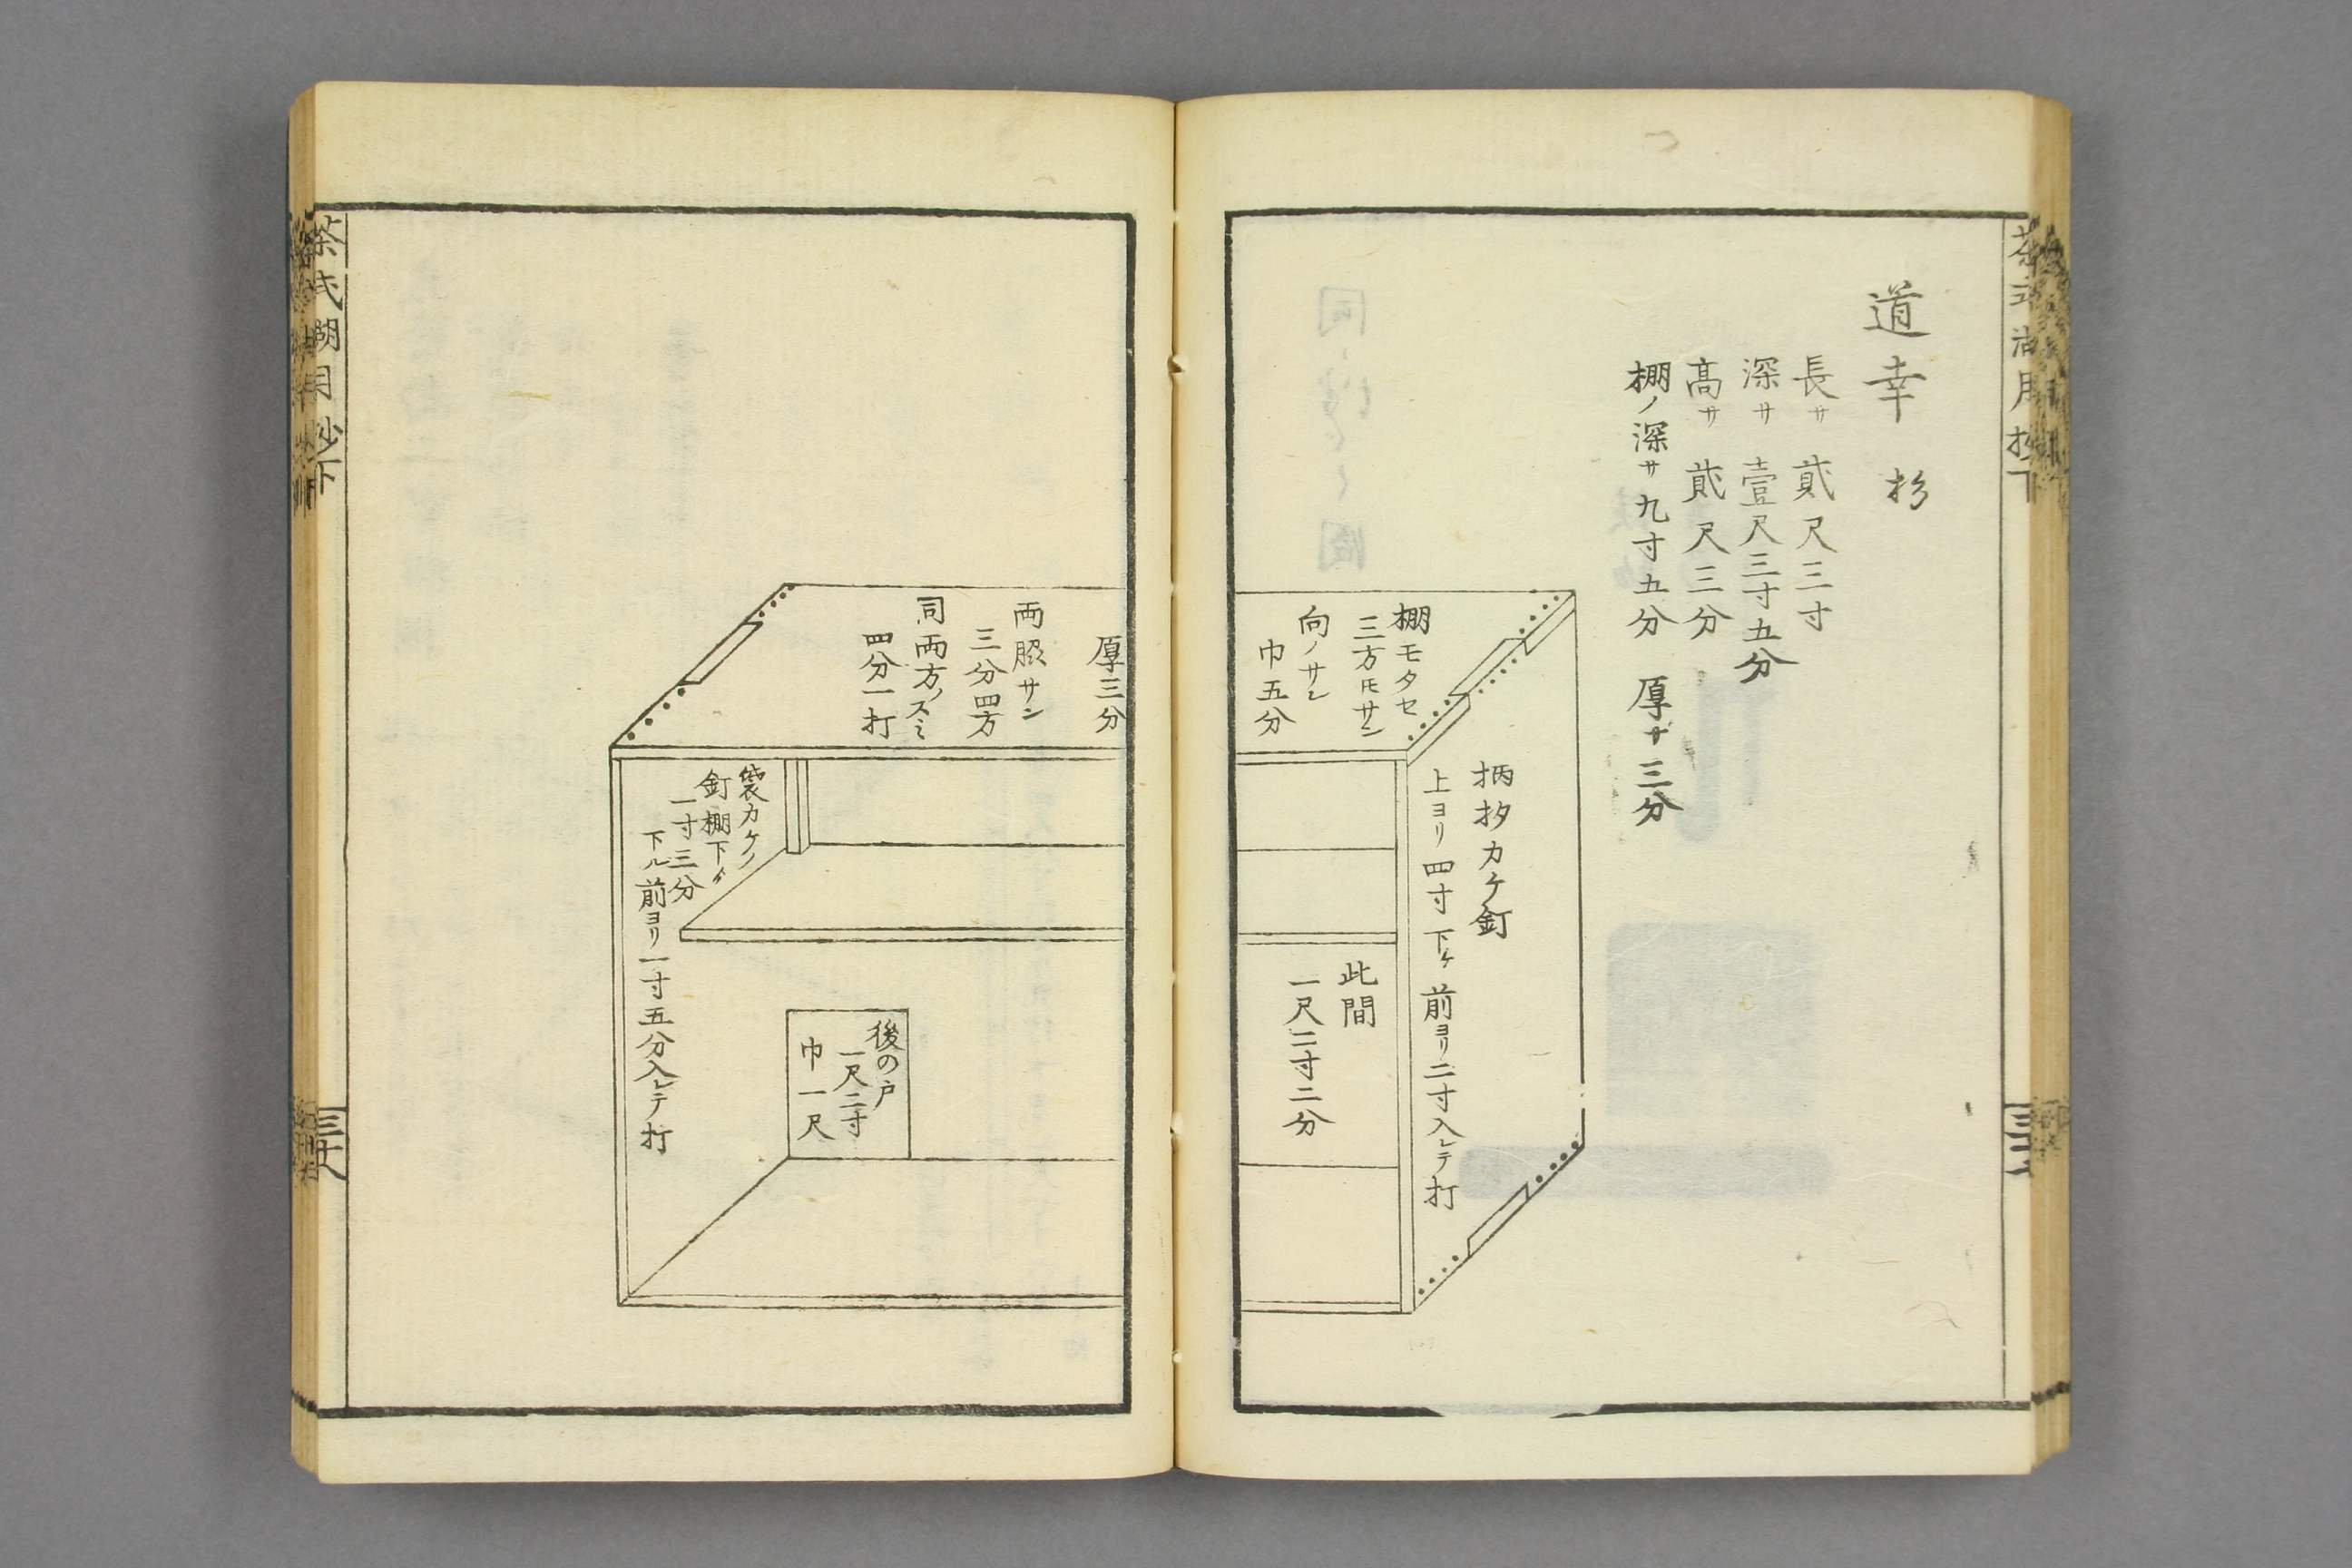 道幸 杉
長サ 貮尺三寸
深サ 壹尺三寸五分
髙サ 貮尺三分
棚ノ深サ九寸五分 厚サ三分
棚モタセ
三方ヒサン
向ノサン
巾五分
柄杓カケ釘
上ヨリ四寸下ケ前ヨリ二寸入レテ打
此間
一尺二寸二分
厚三分
両脇サン
三分四方
同両方ノスミ
四分一打
袋カケノ
釘棚下ゟ
一寸三分
下ル前ヨリ一寸五分入レテ打
後の戸
一尺二寸
巾一尺
茶式湖月抄下